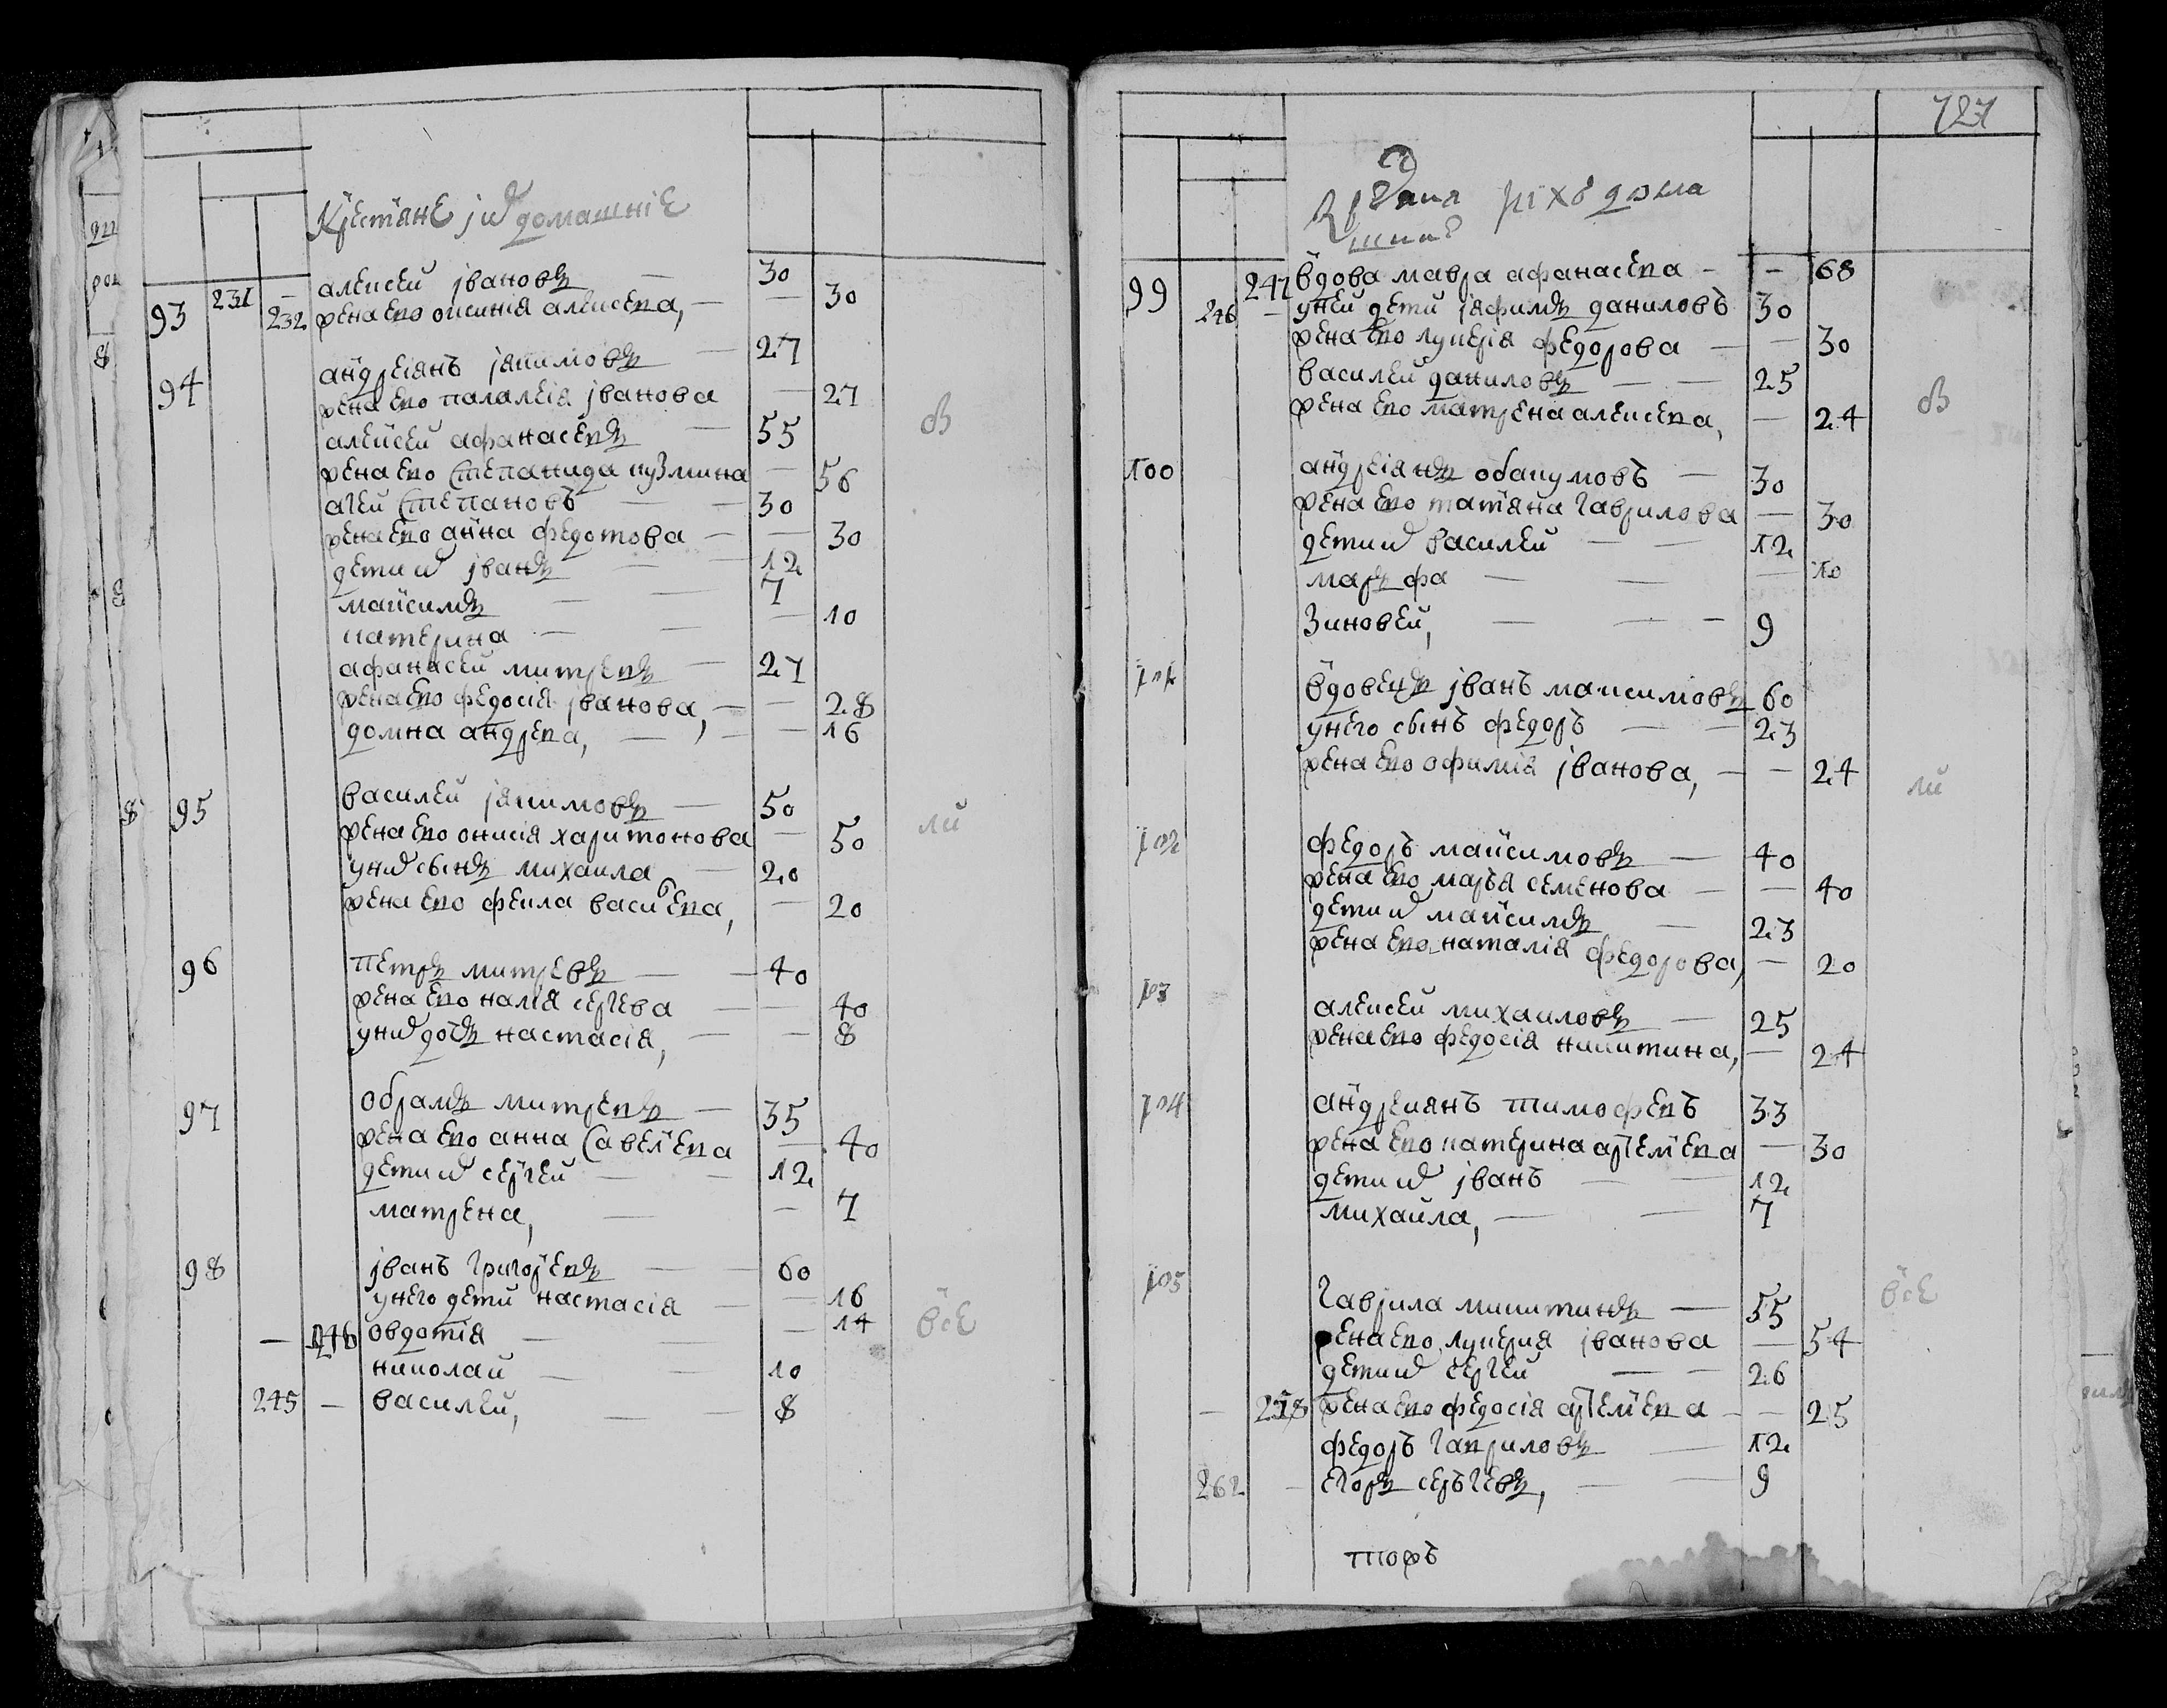 Крестьяне и их домашние
93 231 — алексей ивановъ — 30
— 232 жена ево ксения алексева, — — 30
94 андреянъ якимовъ — 27
жена ево палагея иванова — 27
алексей афанасевъ — 55
жена ево степанида кузмина — 56
агей степановъ — 30
жена ево анна федотова — — 30
дети их иванъ — 12
максимъ — 7
катерина — — 10
афанасей митревъ — 27
жена ево федосия иванова, — — 28
домна андрева, — — 16
95 василей якимовъ — 50
жена ево онисия харитонова — 50
у них сынъ михаила — 20
жена ево фекла василева, — 20
96 петръ митревъ — 40
жена ево сергева — — 40
у них дочь настасия, — — 8
97 обрамъ митревъ — 35
жена ево анна савелева — 40
дети их сергей — 12
матрена, — — 7
98 иванъ григоревъ — 60
у него дети настасия — — 16
— овдотия — — 14
николай — 10
245 — василей, — 8
в
ли
все
727
99 247 вдова мавра афанасева — — 68
246 — у ней дети якимъ даниловъ 30
жена ево лукерия федорова — — 30
василей даниловъ — — 25
жена ево матрена алексева, — 24
100 андреянъ обакумовъ — 30
жена ево татяна гаврилова — 30
дети их василей — — 12
марфа — — — 10
зиновей, — — 9
101 вдовецъ иванъ максимовъ 60
у него сынъ федоръ — — 23
жена ево офимия иванова, — — 24
102 федоръ максимовъ — 40
жена ево маръя семенова — — 40
дети их максимъ — 23
жена ево наталия федорова, — 20
103 алексей михаиловъ — 25
жена ево федосия никитина, — 24
104 андреянъ тимофевъ 33
жена ево катерина артемева — 30
дети их иванъ — — 12
михаила, — — 7
105 гаврила микитинъ — 55
жена ево лукерия иванова — 54
дети их сергей — — 26
— жена ево федосия артемева — — 25
федоръ гавриловъ — 12
262 — егоръ серъгевъ, — 9
в
ли
все